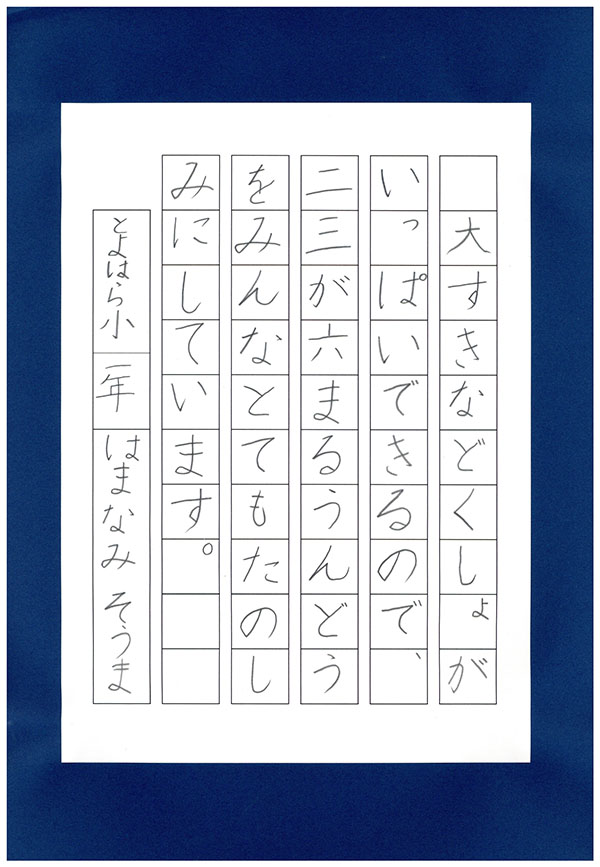 大すきなどくしょが
いっぱいできるので、
二三が六まるうんどう
をみんなとてもたのし
みにしています。
とよはら小 一年 はまなみ そうま